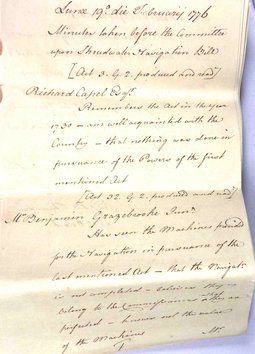 Lunæ 19º die February 1776
Minutes taken before the Committee
upon Stroudwater Navigation Bill
[Act 3. G. 2. produced and read]
Richard Capel Esqr.
Remembers the Act in the year
1730 – am well acquainted with the
Country – that nothing was done in
pursuance of the Powers of the first
mentioned Act
[Act 32. G. 2. produced and read]
Mr Benjamin Grazebrooke Junr.
Has seen the Machines provided
for the Navigation in pursuance of the
last mentioned Act – that the Navigatn
is not compleated – believes they
belong to the Commissioners
– knows not the value
of the Machines
Mr